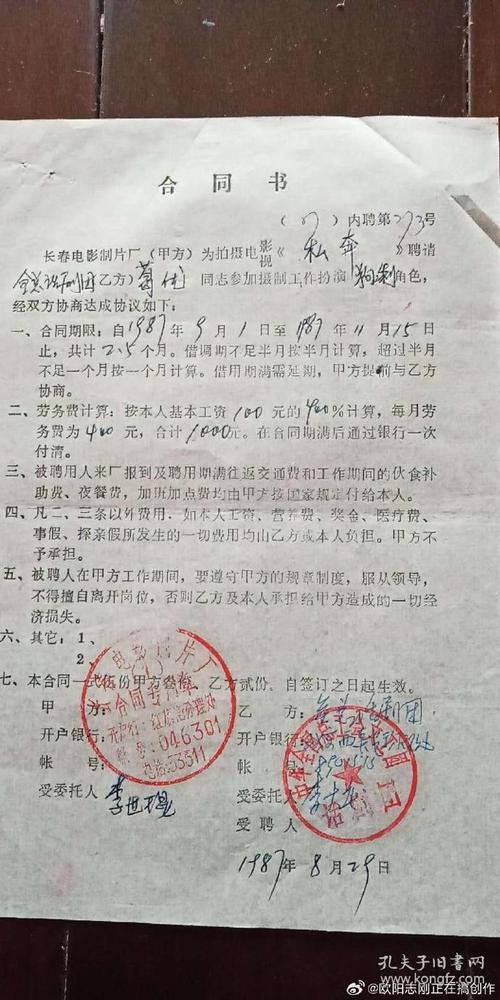 合同书
(87)内聘第273号
长春电影制片厂(甲方)为拍摄电影视《私奔》聘请
全总话剧团(乙方)葛优同志参加摄制工作扮演 角色,
经双方协商达成协议如下:
一、合同期限:自1987年9月1日至1987年11月15日
止,共计2.5个月。借调期不足半月按半月计算,超过半月
不足一个月按一个月计算。借用期满需延期,甲方提前与乙方
协商。
二、劳务费计算:按本人基本工资100元的400%计算,每月劳
务费为400元,合计1000元。在合同期满后通过银行一次
付清。
三、被聘用人来厂报到及聘用期满往返交通费和工作期间的伙食补
助费、夜餐费,加班加点费均由甲方按国家规定付给本人。
四、凡二、三条以外费用.如本人工资、营养费、奖金、医疗费、
事假、探亲假所发生的一切费用均由乙方或本人负担。甲方不
予承担。
五、被聘人在甲方工作期间,要遵守甲方的规章制度,服从领导,
不得擅自离开岗位,否则乙方及本人承担给甲方造成的一切经
济损失。
六、其它:1、
2、
七、本合同一式伍份甲方叁份,乙方贰份,自签订之日起生效。
甲方:
开户银行:
帐号:
受委托人
李世
乙方:全总话剧团
开户银行:
帐号:
受委托人
受聘人
1987年8月29日
电影制片厂
合同专用章
开户行:红旗街分理处
帐号:046301
电话:53311
中华全国总工会
话剧团
孔夫子旧书网
www.kongfz.com
@欧阳志刚正在搞创作